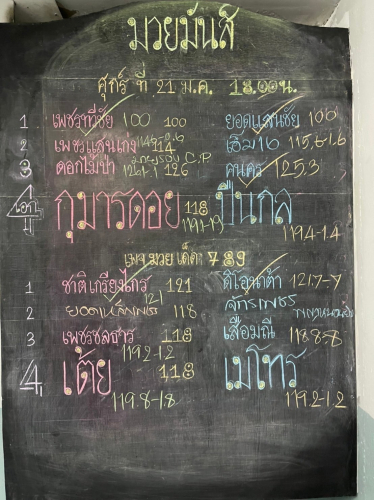 มวยมันส์
ศุกร์ ที่ 21 ม.ค. 18.00น.
1 เพชรทวีชัย 100 100 ยอดแสนชัย 100
2 เพชรแสนเก่ง 114 เสิม10 115.6-1.6
3 ดอกไม้ป่า 126.1-1 126 คนคร 125.3
4 เอก กุมารดอย 118 ปืนกล
119.1-1.1 119.4-1.4
เพชรมวยเด็ด 789
1 ชาติเกรียงไกร 121 ดิโอาเก้า 121.7-7
2 ยอดแสนเพชร 118 จักรเพชร
3 เพชรชลธาร 118 เสือมณี 118.8-8
119.2-1.2
4 เต้ย 118 เมโทร
119.8-1.8 119.2-1.2